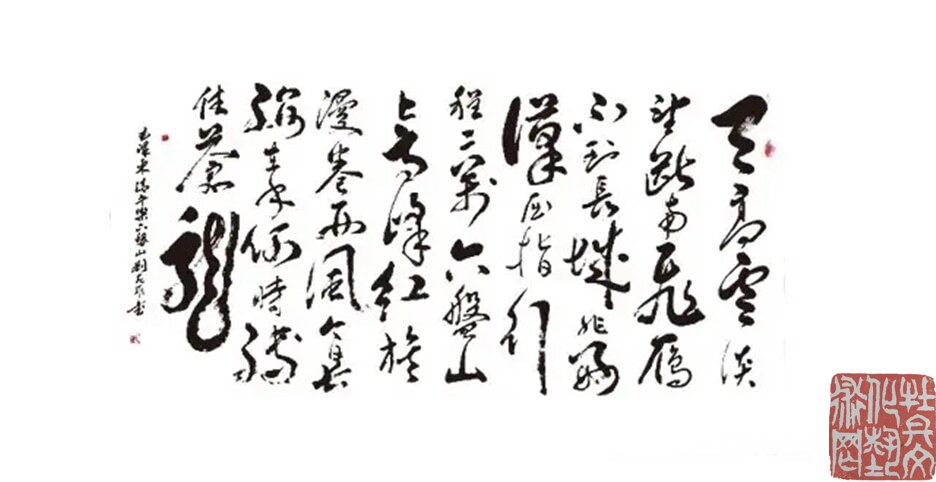 天高雲淡
望断南飛雁
不到長城非好
漢屈指行
程二萬六盤山
上高峰紅旗
漫卷西風今日長
纓在手何時縛
住蒼龍
毛澤東清平樂六盤山劉書